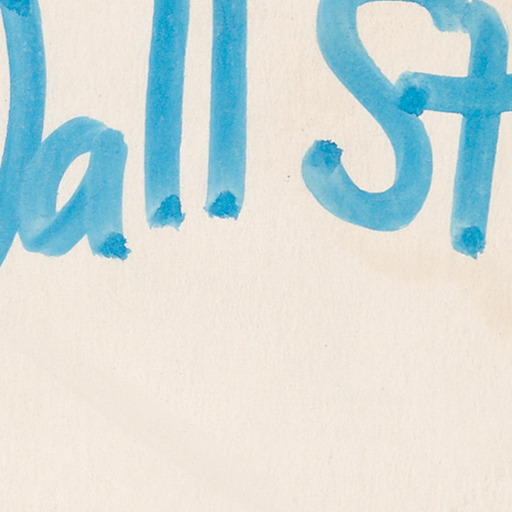 Wall St